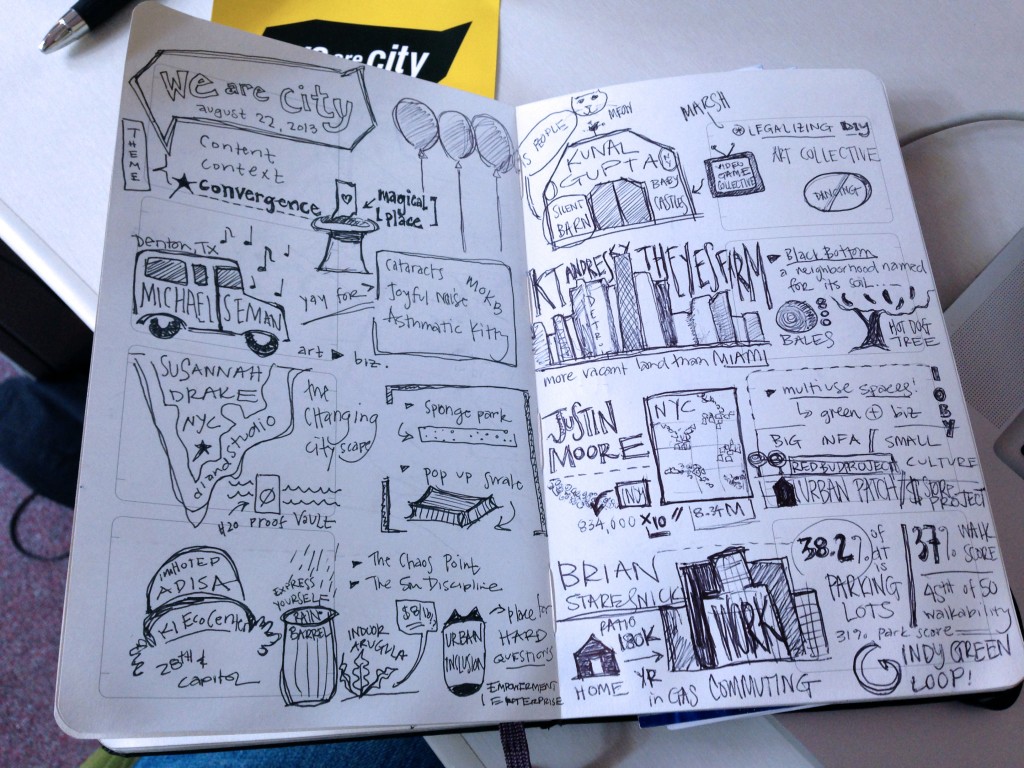 are city
We are City
august 22, 2013
THEME
Content
Context
★ Convergence
magical place
Denton, TX
MICHAEL SEMAN
yay for
Cataracts
Joyful Noise
Asthmatic Kitty
MOKB
art ▶ biz.
SUSANNAH
DRAKE
NYC
dlandstudio
the
changing
cityscape
H2O PROOF VAULT
▶ Sponge park
▶ pop up swale
IMHOTEP
ADISA
KI EcoCenter
28TH &
capitol
EXPRESS
YOURSELF
RAIN
BARREL
▶ The Chaos Point
▶ The Sun Discipline
INDOOR
ARUGULA
$8/lb
URBAN
INCLUSION
place for
HARD
QUESTIONS
EMPOWERMENT
ENTERPRISE
IS PEOPLE
MEOW
KUNAL
GUPTA
SILENT
BARN
BABY
CASTLES
MARSH
VIDEO
GAME
COLLECTIVE
LEGALIZING DIY
ART COLLECTIVE
DANCING
KT ANDRESKY THE YES FARM
DETR
more vacant land than MIAMI
▶ Black Bottom
a neighborhood named
for its soil...
BALES
HOT DOG
TREE
JUSTIN
MOORE
NYC
INDY
834,000 x 10"
8.34M
▶ multiuse spaces!
green + biz
LOBBY
BIG INFA || SMALL
REDBUD PROJECT CULTURE
URBAN PATCH / $ STORE
PROJECT
BRIAN
STARESNICK
PATIO
HOME
180K
YR
WORK
in GAS COMMUTING
38.2% of
it
is
PARKING
LOTS
31% park score
37% WALK
SCORE
49th of 50
walkability
INDY GREEN
LOOP!